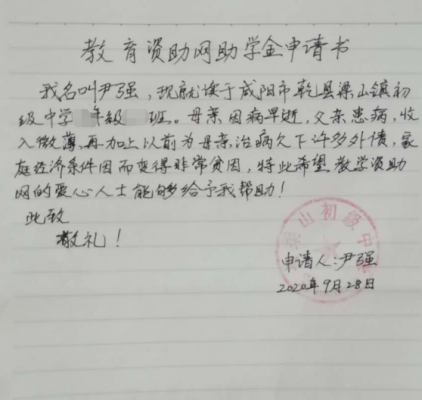 教育资助网助学金申请书
我名叫尹强，现就读于咸阳市乾县梁山镇初
级中学年级班。母亲因病早逝，父亲患病，收
入微薄，再加上以前为母亲治病欠下许多外债，家
庭经济条件因而变得非常贫困，特此希望教学资助
网的爱心人士能够给予我帮助！
此致
敬礼！
山初级中
申请人：尹强
2020年9月28日